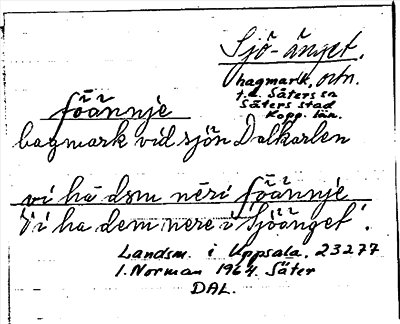 Sjö-änget.
hagmark, ortn.
t.d. Säters sn
Säters stad
Kopp. län.
föännje
hagmark vid sjön Dalkarlen
vi ha dsm neri föännje
Vi ha dem nere i Sjöänget.
Landsm. i Uppsala. 23277
I. Norman 1964. Säter
DAL.